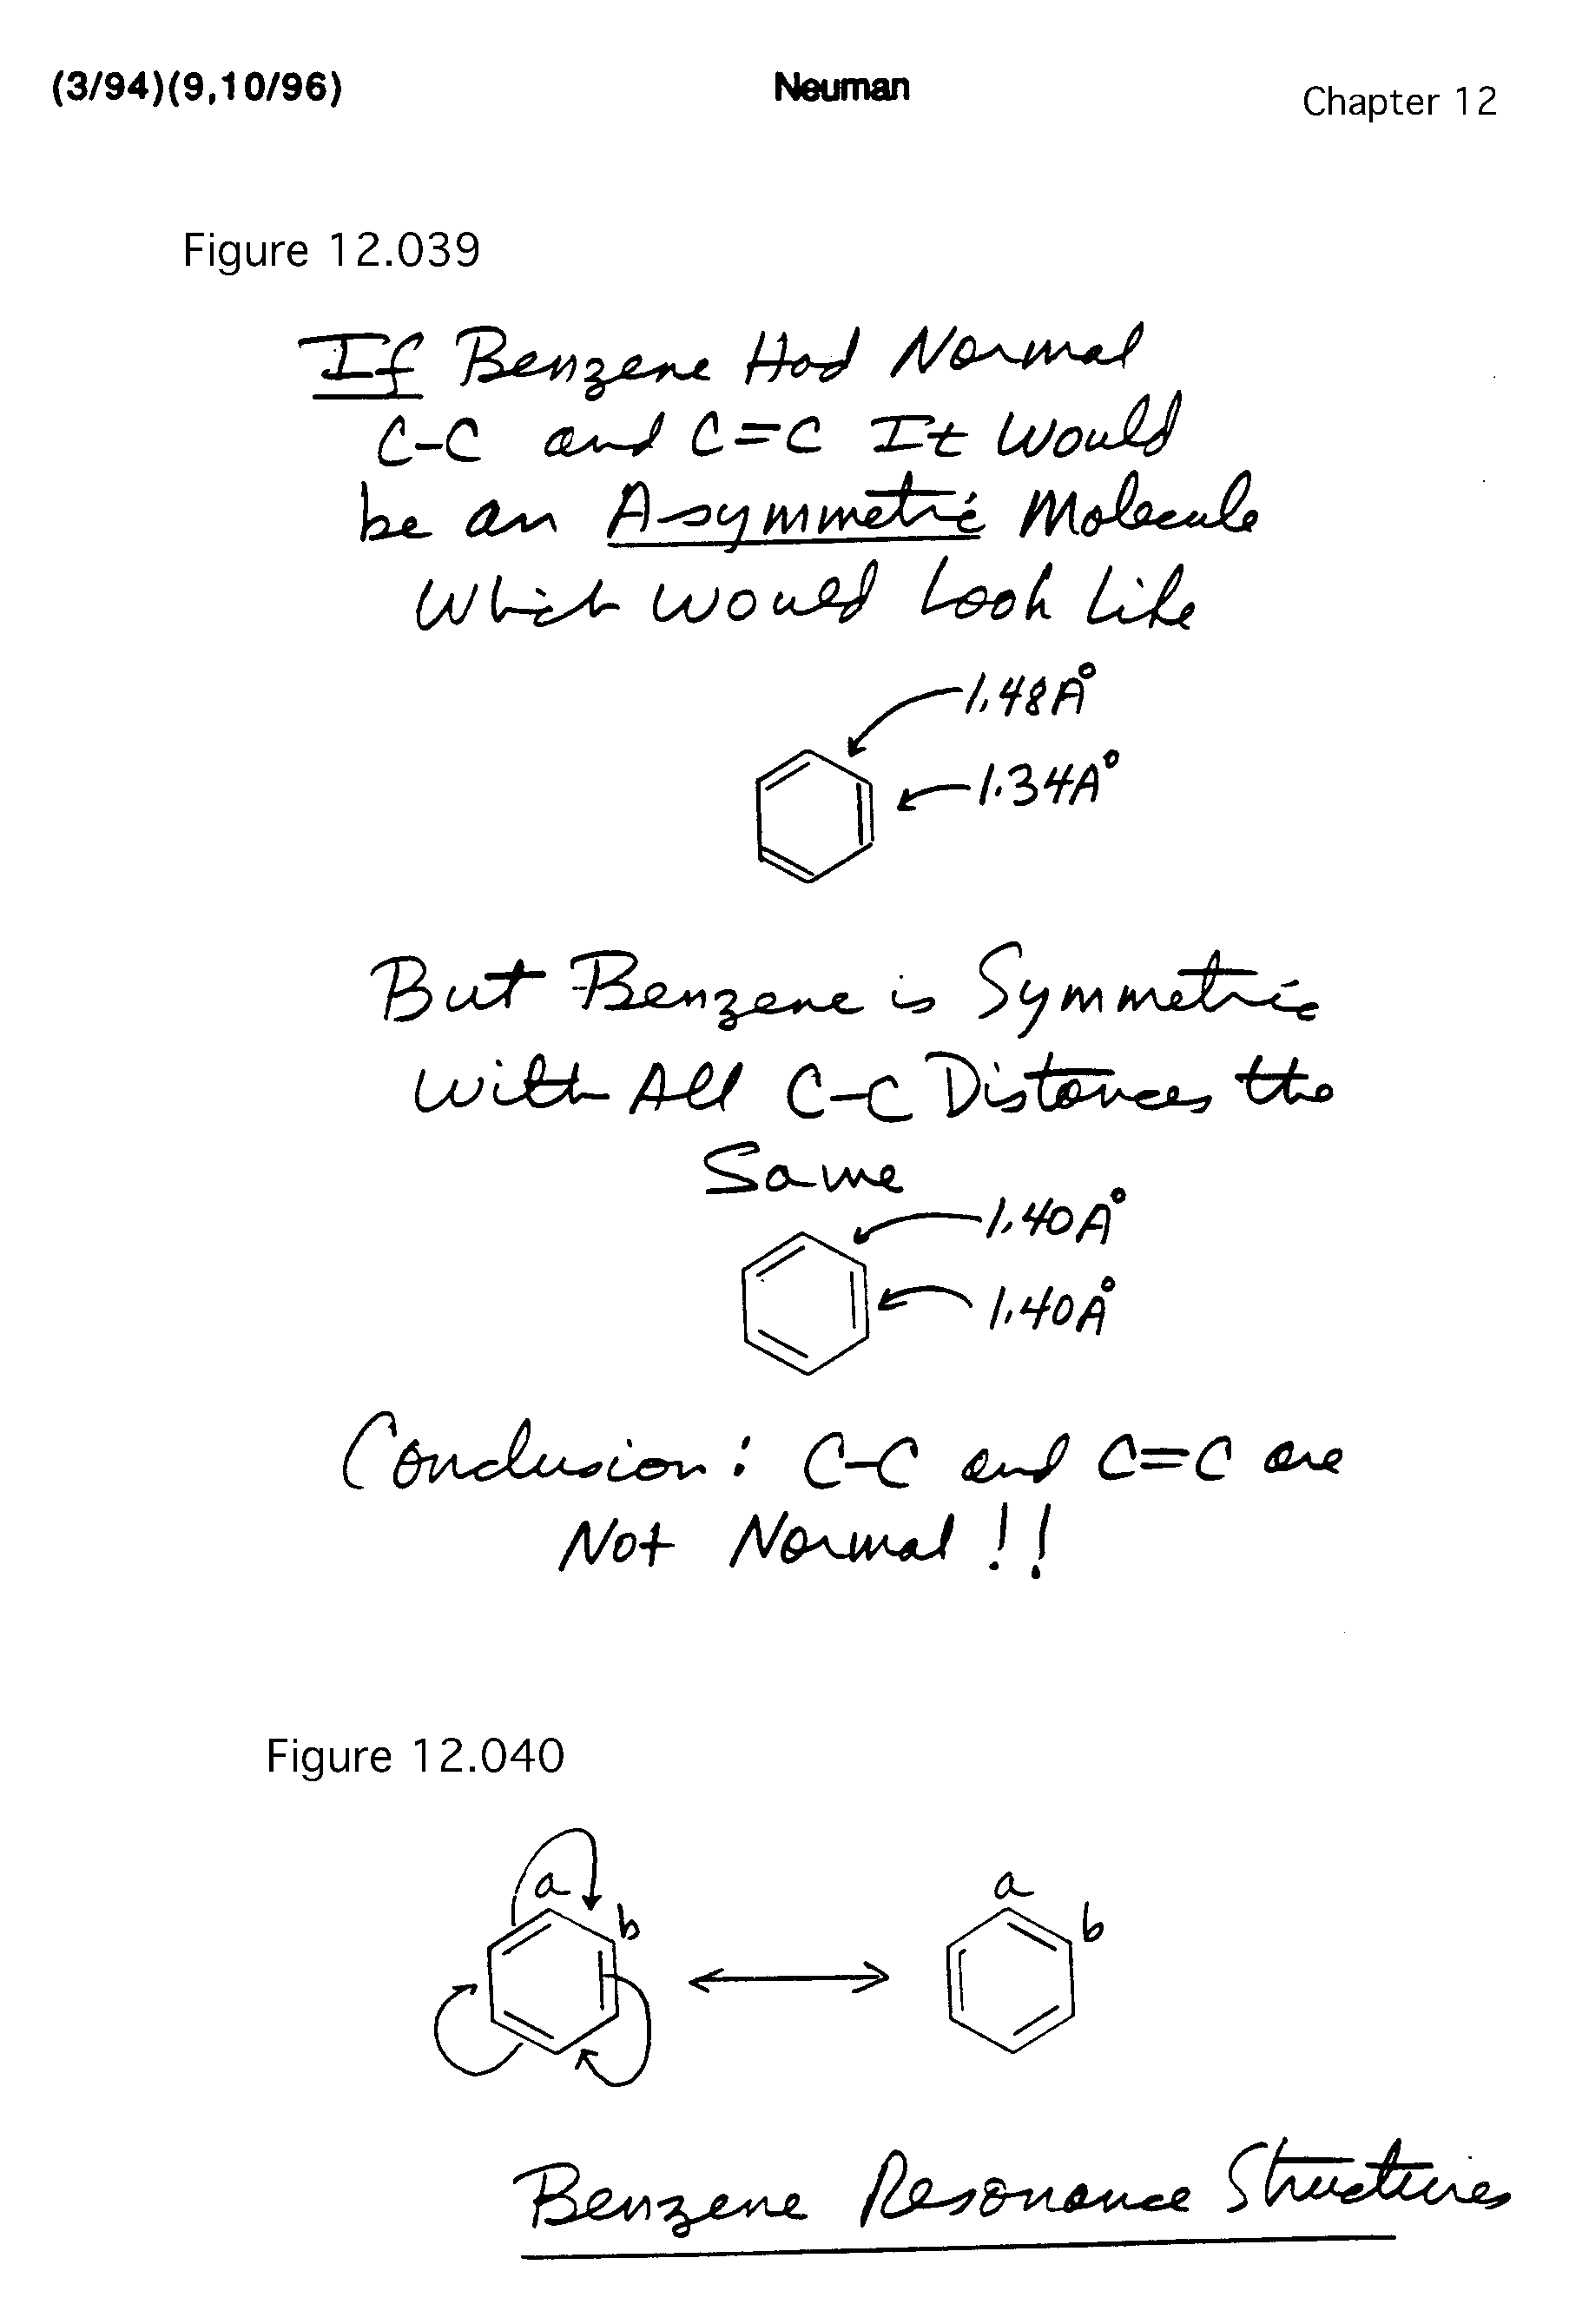 (3/94)(9,10/96) Neuman Chapter 12
Figure 12.039
If Benzene Had Normal
C-C and C=C It Would
be an Asymmetric Molecule
Which Would Look Like
1.48A°
1.34A°
But Benzene is Symmetric
With All C-C Distances the
Same
1.40A°
1.40A°
Conclusion: C-C and C=C are
Not Normal!!
Figure 12.040
a a
b b
Benzene Resonance Structures